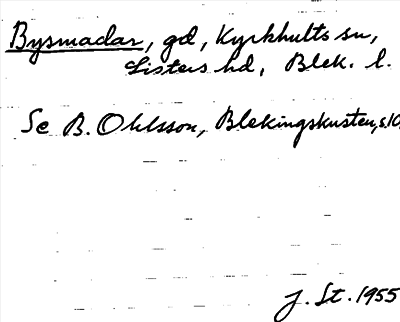 Bysmadar, gd, Kyrkhults sn,
Listers hd, Blek. l.
Se B. Ohlsson, Blekingskusten, s.10
J. St. 1955